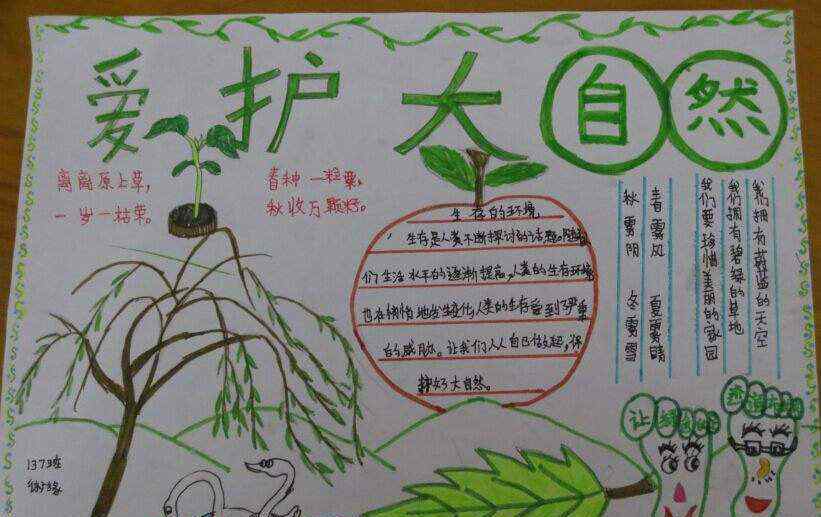 爱护大自然
离离原上草,
一岁一枯荣。
春种一粒粟,
秋收万颗籽。
生存的环境
生存是人类不断探讨的话题。随着
们生活水平的逐渐提高,人类的生存环境
也在悄悄地发生变化,人类的生存受到了严重
的威胁。让我们人人自己做起,保
护好大自然。
我们拥有蔚蓝的天空
我们拥有碧绿的草地
我们要珍惜美丽的家园
春雾风 夏雾晴
秋雾阴 冬雾雪
137班
让